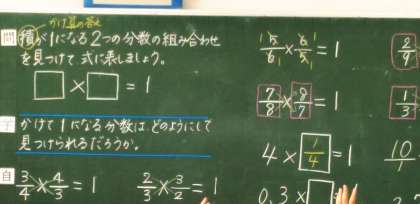 かけ算の答え
問 積が1になる2つの分数の組み合わせ
を見つけて 式に表しましょう。
□ × □ = 1
かけて1になる分数は どのようにして
見つけられるだろうか。
自 3/4 × 4/3 = 1 2/3 × 3/2 = 1
5/6 × 6/5 = 1
7/8 × 8/7 = 1
4 × 1/4 = 1
0.3 ×
2/9
1/3
10/1